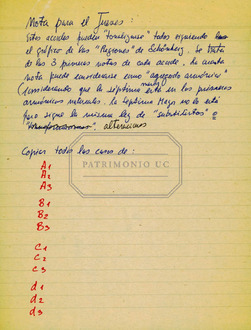 Nota para el Jueves:
Estos acordes pueden "atestiguarse" todos siguiendo
el gráfico de las "Regiones" de Schönberg. Se trata
de las 3 primeras notas de cada acorde. La cuarta
nota puede considerarse como "agregado armónico"
(considerando que la séptima menor está en los primeros
armónicos naturales. La séptima Mayor no lo está
pero sigue la misma ley de "substitutos" o
alteraciones
Copiar todos los casos de:
A1
A2
A3
B1
B2
B3
C1
C2
C3
d1
d2
d3
PATRIMONIO UC